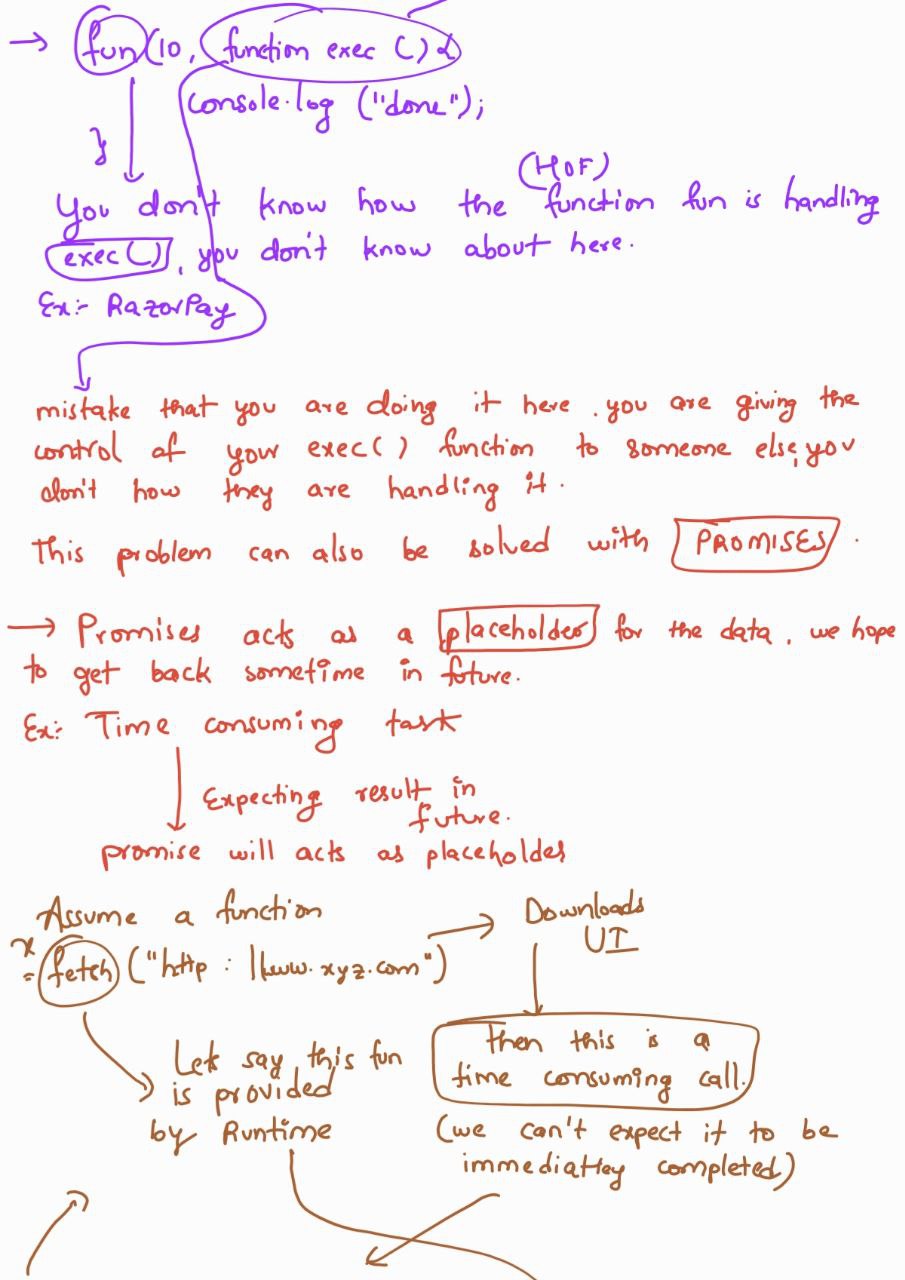 → fun(10, function exec () {
console.log ("done");
}
(HOF)
You don't know how the function fun is handling
exec(), you don't know about here.
Ex:- RazorPay
mistake that you are doing it here. you are giving the
control of your exec() function to someone else, you
don't how they are handling it.
This problem can also be solved with PROMISES.
→ Promises acts as a placeholder for the data, we hope
to get back sometime in future.
Ex:- Time consuming task
Expecting result in
future.
promise will acts as placeholder
Assume a function
x = fetch ("http://www.xyz.com") → Downloads
UI
Lets say this fun
is provided
by Runtime
then this is a
time consuming call.
(we can't expect it to be
immediattey completed)